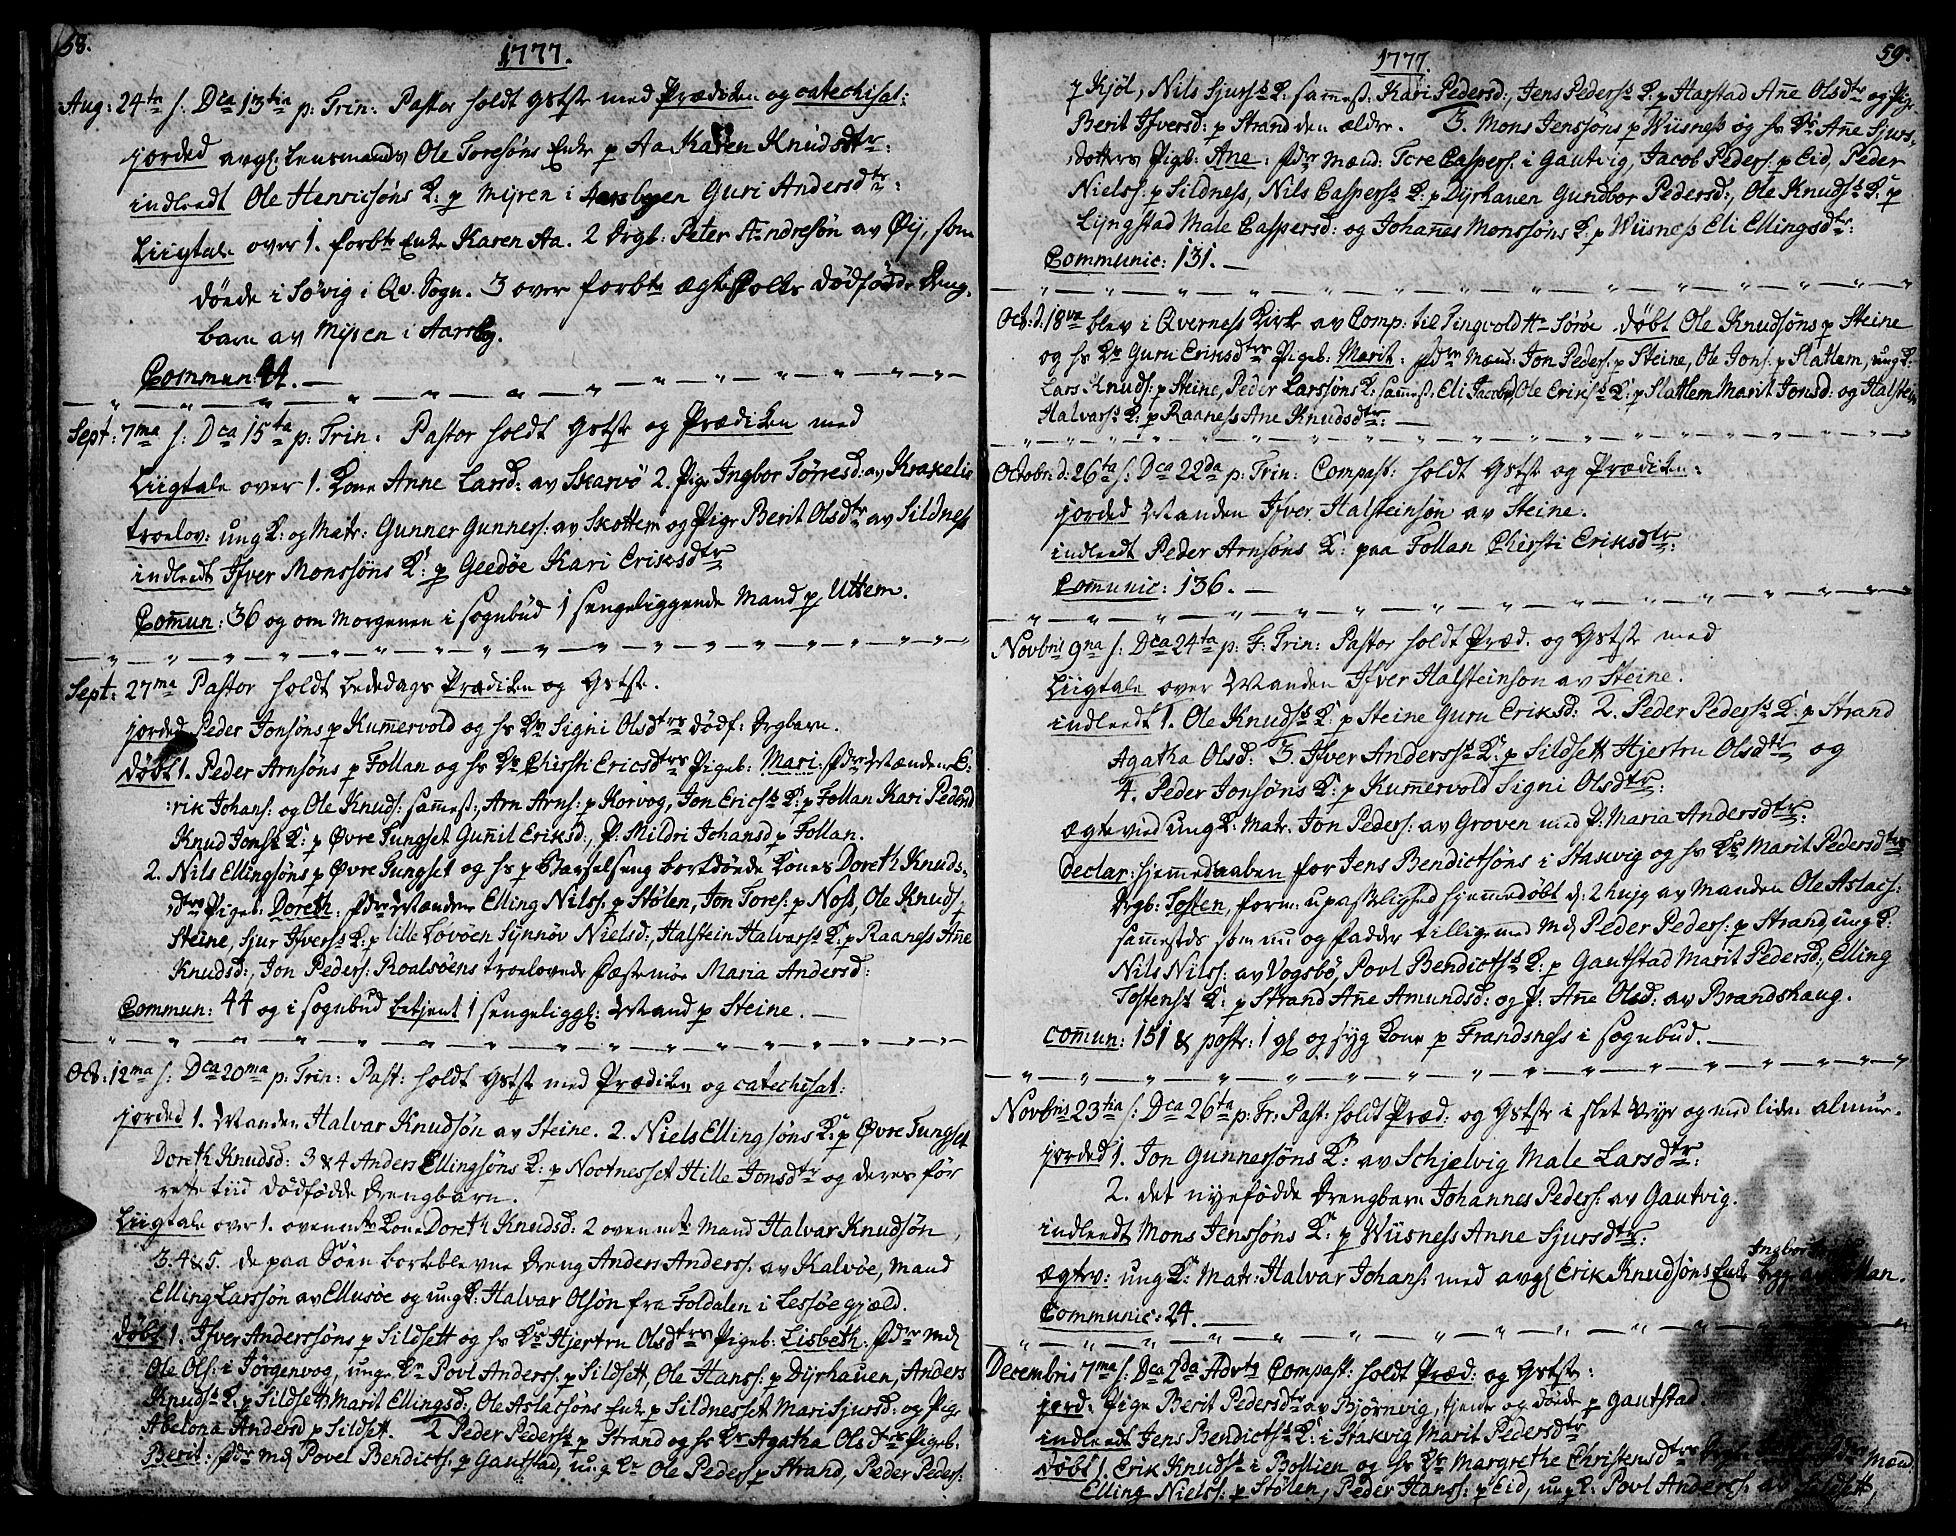 58.
1777.
Aug: 24ta s: Dca 13tia p: Trin: Pastor holdt Gstste med Prædiken og catechisat:
jorded avgl: Lensmands Ole Toresøns Enke p Aa Karen Knudsdtr:
indleedt Ole Henricsøns K: p Myren i Aarsbyen Guri Andersdtr:
Liigtale over 1. forbte Enke Karen Aa. 2 Drgb: Peter Andresøn av Øy, som
døede i Søvig i Qv. Sogn. 3 over forbte ægte Folks dødfødde Dreng-
barn av Myren i Aarsby.
Commun: 44.
Sept: 7ma s: Dca 15ta p: Trin: Pastor holdt Gstste og Prædiken med
Liigtale over 1. Kone Anne Larsd: av Skarvø 2. Pige Ingbor Tørresd: av Krakelie
troelov: ung K: og Matr: Gunner Gunners: av Skottem og Pige Berit Olsdtr av Sildness
indleedt Ifver Monssøns K: p Geedøe Kari Eriksdtr
Comun: 36 og om Morgenen i sognbud 1 sengeliggende Mand p Uttem.
Sept: 27ma Pastor holdt bededags Prædiken og Gstste.
jorded Peder Jonsøns p Kumervold og hs Ke Signi Olsdtrs dødf: Drgbarn.
døbt 1. Peder Arnsøns p Follan og hs Ke Chirsti Ericsdtrs Pigeb: Mari: fdre Mændene E-
:rik Johans: og Ole Knuds: sammest:, Arn Arns: p Korvog, Jon Erics K: p Follan Kari Pedersd
Knud Jons K: p Øvre Tungset Gunnil Eriksd:, P: Mildri Johansd p Follan.
2. Nils Ellingsøns p Øvre Tungset og hs p Barselseng bortdøede Kones Doreth Knuds-
dtrs Pigeb: Doreth: fdre Mændene Elling Nilss: p Stølen, Jon Tores: p Nost, Ole Knuds p
Steine, Sjur Ifvers K: p lille Tovøen Synnøv Nielsd:, Halstein Halvars K: p Raaness Ane
Knudsd:, Jon Peders: Roalsøens troelovede fæstemøe Maria Andersd:
Commun: 44 og i sognbud betjent 1 sengeliggl: Mand p Steine.
Oct: 12ma s: Dca 20ma p: Trin: Past: holdt Gstste med Prædiken og catechisat:
jorded 1. Manden Halvar Knudsøn av Steine. 2. Niels Ellingsøns K: p Øvre Tungset
Doreth Knudsd: 3 & 4 Anders Ellingsøns K: p Nootnesset Hille Jonsdtr og deres før
rette tiid dødfødde Drengbarn.
Liigtale over 1. ovenmte Kone Doreth Knudsd: 2 ovenmte Mand Halvar Knudsøn,
3. 4 & 5. de paa Søen bortblevne Dreng Anders Anderss: av Kalvøe, Mand
Elling Larssøn av Ellusøe og ung K: Halvar Olsøn fra Foldalen i Lessøe gjæld.
døbt 1. Ifver Anderssøns p Sildsett og hs Ke Hjertru Olsdtrs Pigeb: Lisbeth: fdre Md
Ole Ols: i Jørgenvog, unge Kn Povl Anderss: p Sildsett, Ole Hanss: p Dyrhauen, Anders
Knuds K: p Sildsett Marit Ellingsd:, Ole Aslacsøns Enke p Sildnesset Mari Sjursd: og Pige
Abelona Andersd p Sildset. 2 Peder Peders p Strand og hs Ke Agatha Olsdtrs Pigeb:
Berit: fdre Md Povel Bendicts: p Gautstad, ung Kn Ole Peders p Strand, Peder Peders:
59.
1777.
p Kjøl, Nils Sjurs K: samest: Kari Pedersd:, Jens Peders K: p Harstad Ane Olsdtr og Pige
Berit Ifversd: p Strand den ældre. 3. Mons Jenssøns p Wiisness og hs Ke Ane Sjurs-
dotters Pigb: Ane: fdre Mænd: Tore Caspers: i Gautvig, Jacob Peders: p Eid, Peder
Nielss: p Sildness, Nils Caspers K: p Dyrhauen Gundbor Pedersd:, Ole Knuds K: p
Lyngstad Male Caspersd: og Johanes Monssøns K: p Wiisness Eli Ellingsdtr:
Communic: 131.
Oct: d: 18va blev i Qverness Kirke av Comp: til Tingvold Hr Sørøe døbt Ole Knudsøns p Steine
og hs Ke Guru Eriksdtrs Pigeb: Marit: fdre Mænd: Jon Peders: p Steine, Ole Jons: p Slatlem, ung K:
Lars Knuds: p Steine, Peder Larssøns K: samest: Eli Jacobd, Ole Eriks K: p Slatlem Marit Jonsd: og Halstein
Halvars K: p Raaness Ane Knudsdtr:
Octobr: d: 26ta s: Dca 22da p: Trin: Compast: holdt Gstste og Prædiken:
jorded Manden Ifver Halsteinsøn av Steine.
indleedt Peder Arnsøns K: paa Follan Chirsti Eriksdtr:
Comunic: 136.
Novbris 9na s: Dca 24ta p: F: Trin: Pastor holdt Præd. og Gstste med
Liigtale over Manden Ifver Halsteinson av Steine.
indleedt 1. Ole Knuds K: p Steine Guru Eriksd: 2. Peder Peders K: p Strand
Agatha Olsd: 3. Ifver Anders K: p Sildsett Hjertru Olsdtr og
4. Peder Jonsøns K: p Kumervold Signi Olsdtr:
Ægteviet ung K: Matr: Jon Peders: av Groven med P: Maria Andersdtr:
Declar: hjemedaaben for Jens Bendictsøns i Stakvig og hs Ke Marit Pedersdtrs
Drgb: Tosten, form: upasselighed hjemmedøbt d: 2 hujg av Manden Ole Aslacs:
samesteds som nu og fadder tilligemed Md Peder Peders: p Strand ung K:
Nils Nilss: av Vogsbø, Povl Bendicts K: p Gautstad Marit Pedersd:, Elling
Tostens K: p Strand Ane Amundsd: og P. Ane Olsd: av Brandshaug.
Comun: 151 & postr: 1 gl og syg Kone p Frandsness i sognbud.
Novbris 23tia s: Dca 26ta p: Tr: Past: holdt Præd: og Gstste i slet Vejr og med liden almue.
jorded 1. Jon Gunnersøns K: av Schjelvig Male Larsdtr:
2. det nyefødde Drengbarn Johannes Peders: av Gautvig.
indleedt Mons Jenssøns K: p Wiisness Anne Sjursdtr:
Ægtev: ung K: Matr: Halvar Johans: med avgl Erik Knudsøns Enke Ingbor av Follan.
Communic: 24.
Decembris 7ma s: Dca 2da Advts Compast: holdt Præd: og Gstste:
jord: Pige Berit Pedersdtr av Bjørnvig, tjente og døede p Gautstad.
indleedt Jens Bendicts K: i Stakvig Marit Pedersdtr
døbt 1. Erik Knuds i Bollien og hs Ke Margrethe Christensdtrs Mænd
Elling Nielss: p Stølen, Peder Hanss: p Eid, ung K: Povl Anderss: av Sildsett,